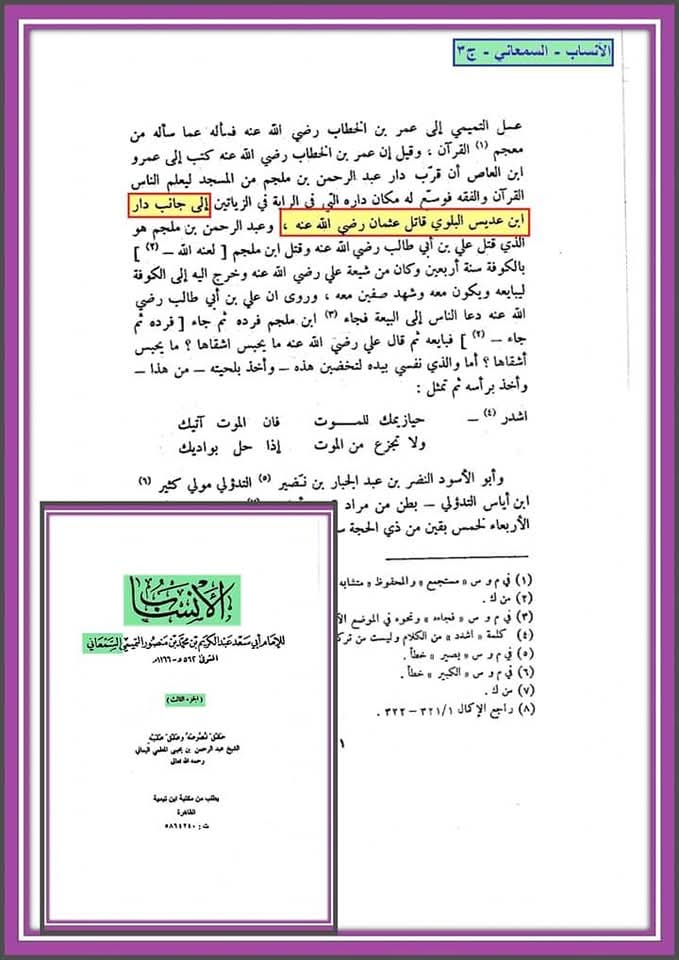 الأنساب - السمعاني - ج٣
عسل التميمي إلى عمر بن الخطاب رضي الله عنه فسأله عما سأله من
معجم (١) القرآن ، وقيل إن عمر بن الخطاب رضي الله عنه كتب إلى عمرو
ابن العاص أن قرّب دار عبد الرحمن بن ملجم من المسجد ليعلم الناس
القرآن والفقه فوسّع له مكان داره التي في الراية في الزياتين إلى جانب دار
ابن عديس البلوي قاتل عثمان رضي الله عنه ، وعبد الرحمن بن ملجم هو
الذي قتل علي بن أبي طالب رضي الله عنه وقتل ابن ملجم [ لعنه الله ــ (٢) ]
بالكوفة سنة أربعين وكان من شيعة علي رضي الله عنه وخرج اليه إلى الكوفة
ليبايعه ويكون معه وشهد صفين معه ، وروى ان علي بن أبي طالب رضي
الله عنه دعا الناس إلى البيعة فجاء (٣) ابن ملجم فرده ثم جاء [ فرده ثم
جاء ــ (٢) ] فبايعه ثم قال علي رضي الله عنه ما يحبس اشقاها ؟ ما يحبس
أشقاها ؟ أما والذي نفسي بيده لتخضبن هذه ــ وأخذ بلحيته ــ من هذا ــ
وأخذ برأسه ثم تمثل :
اشدر (٤) ــ حيازيمك للمـــوت فان الموت آتيك
ولا تجزع من الموت إذا حل بواديك
وأبو الأسود النضر بن عبد الجبار بن نضير (٥) التدؤلي مولي كثير (٦)
ابن أياس التدؤلي ــ بطن من مراد
الأربعاء لخمس بقين من ذي الحجة
(١) في م و س « مستجمع » والمحفوظ « متشابه
(٢) من ك .
(٣) في م و س « فجاءه » ونحوه في الموضع
(٤) كلمة « اشدد » من الكلام وليست من
(٥) في م و س « بصير » خطأ .
(٦) في م و س « الكبير » خطأ .
(٧) من ك .
(٨) راجع الإكمال ١/ ٣٢١ – ٣٢٢ .
١
الأنساب
للإمام أبي سعد عبد الكريم بن محمد بن منصور التميمي السمعاني
المتوفى ٥٦٢ هـ - ١١٦٦ م
(الجزء الثالث)
حقق نصوصه وعلق عليه
الشيخ عبد الرحمن بن يحيى المعلمي اليماني
رحمه الله تعالى
يطلب من مكتبة ابن تيمية
القاهرة
ت : ٥٨٦٤٢٤٠